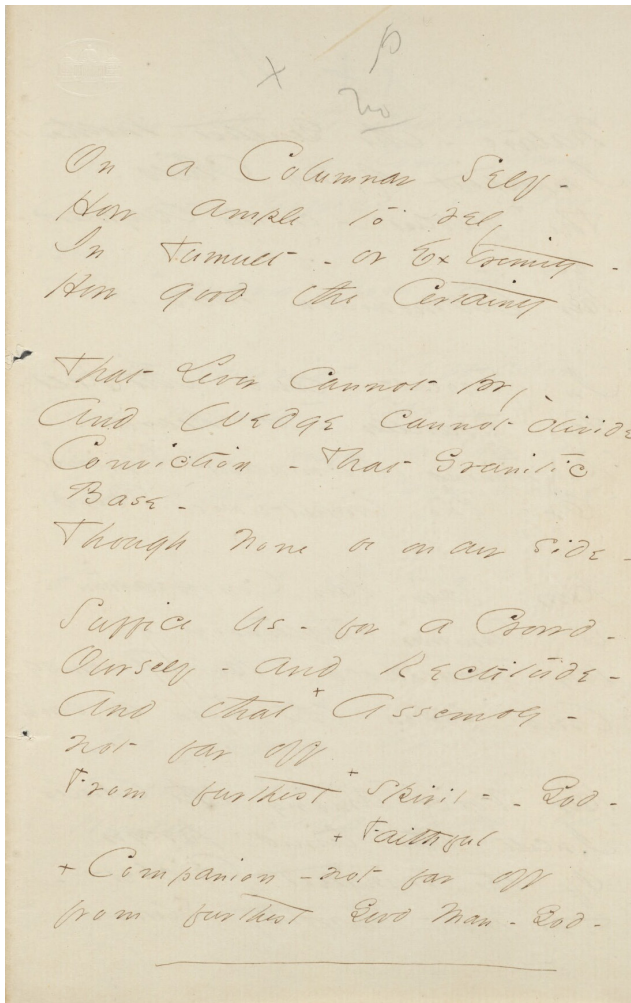 x p
no
On a Columnar Self -
How ample to rely
In Tumult - or Extremity -
How good the Certainty
That Lever cannot pry -
And Wedge cannot divide
Conviction - That Granitic
Base -
Though none be on our side -
Suffice Us - for a Crowd -
Ourself - and Rectitude -
And that + Assembly -
not far off
From furthest + Spirit - - God -
+ Faithful
+ Companion - not far off
from furthest Good Man - God -